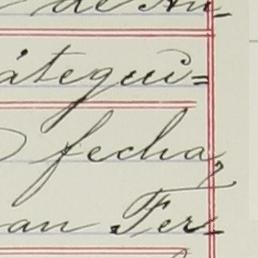 de Au-
átegui=
fecha,
an Fer-